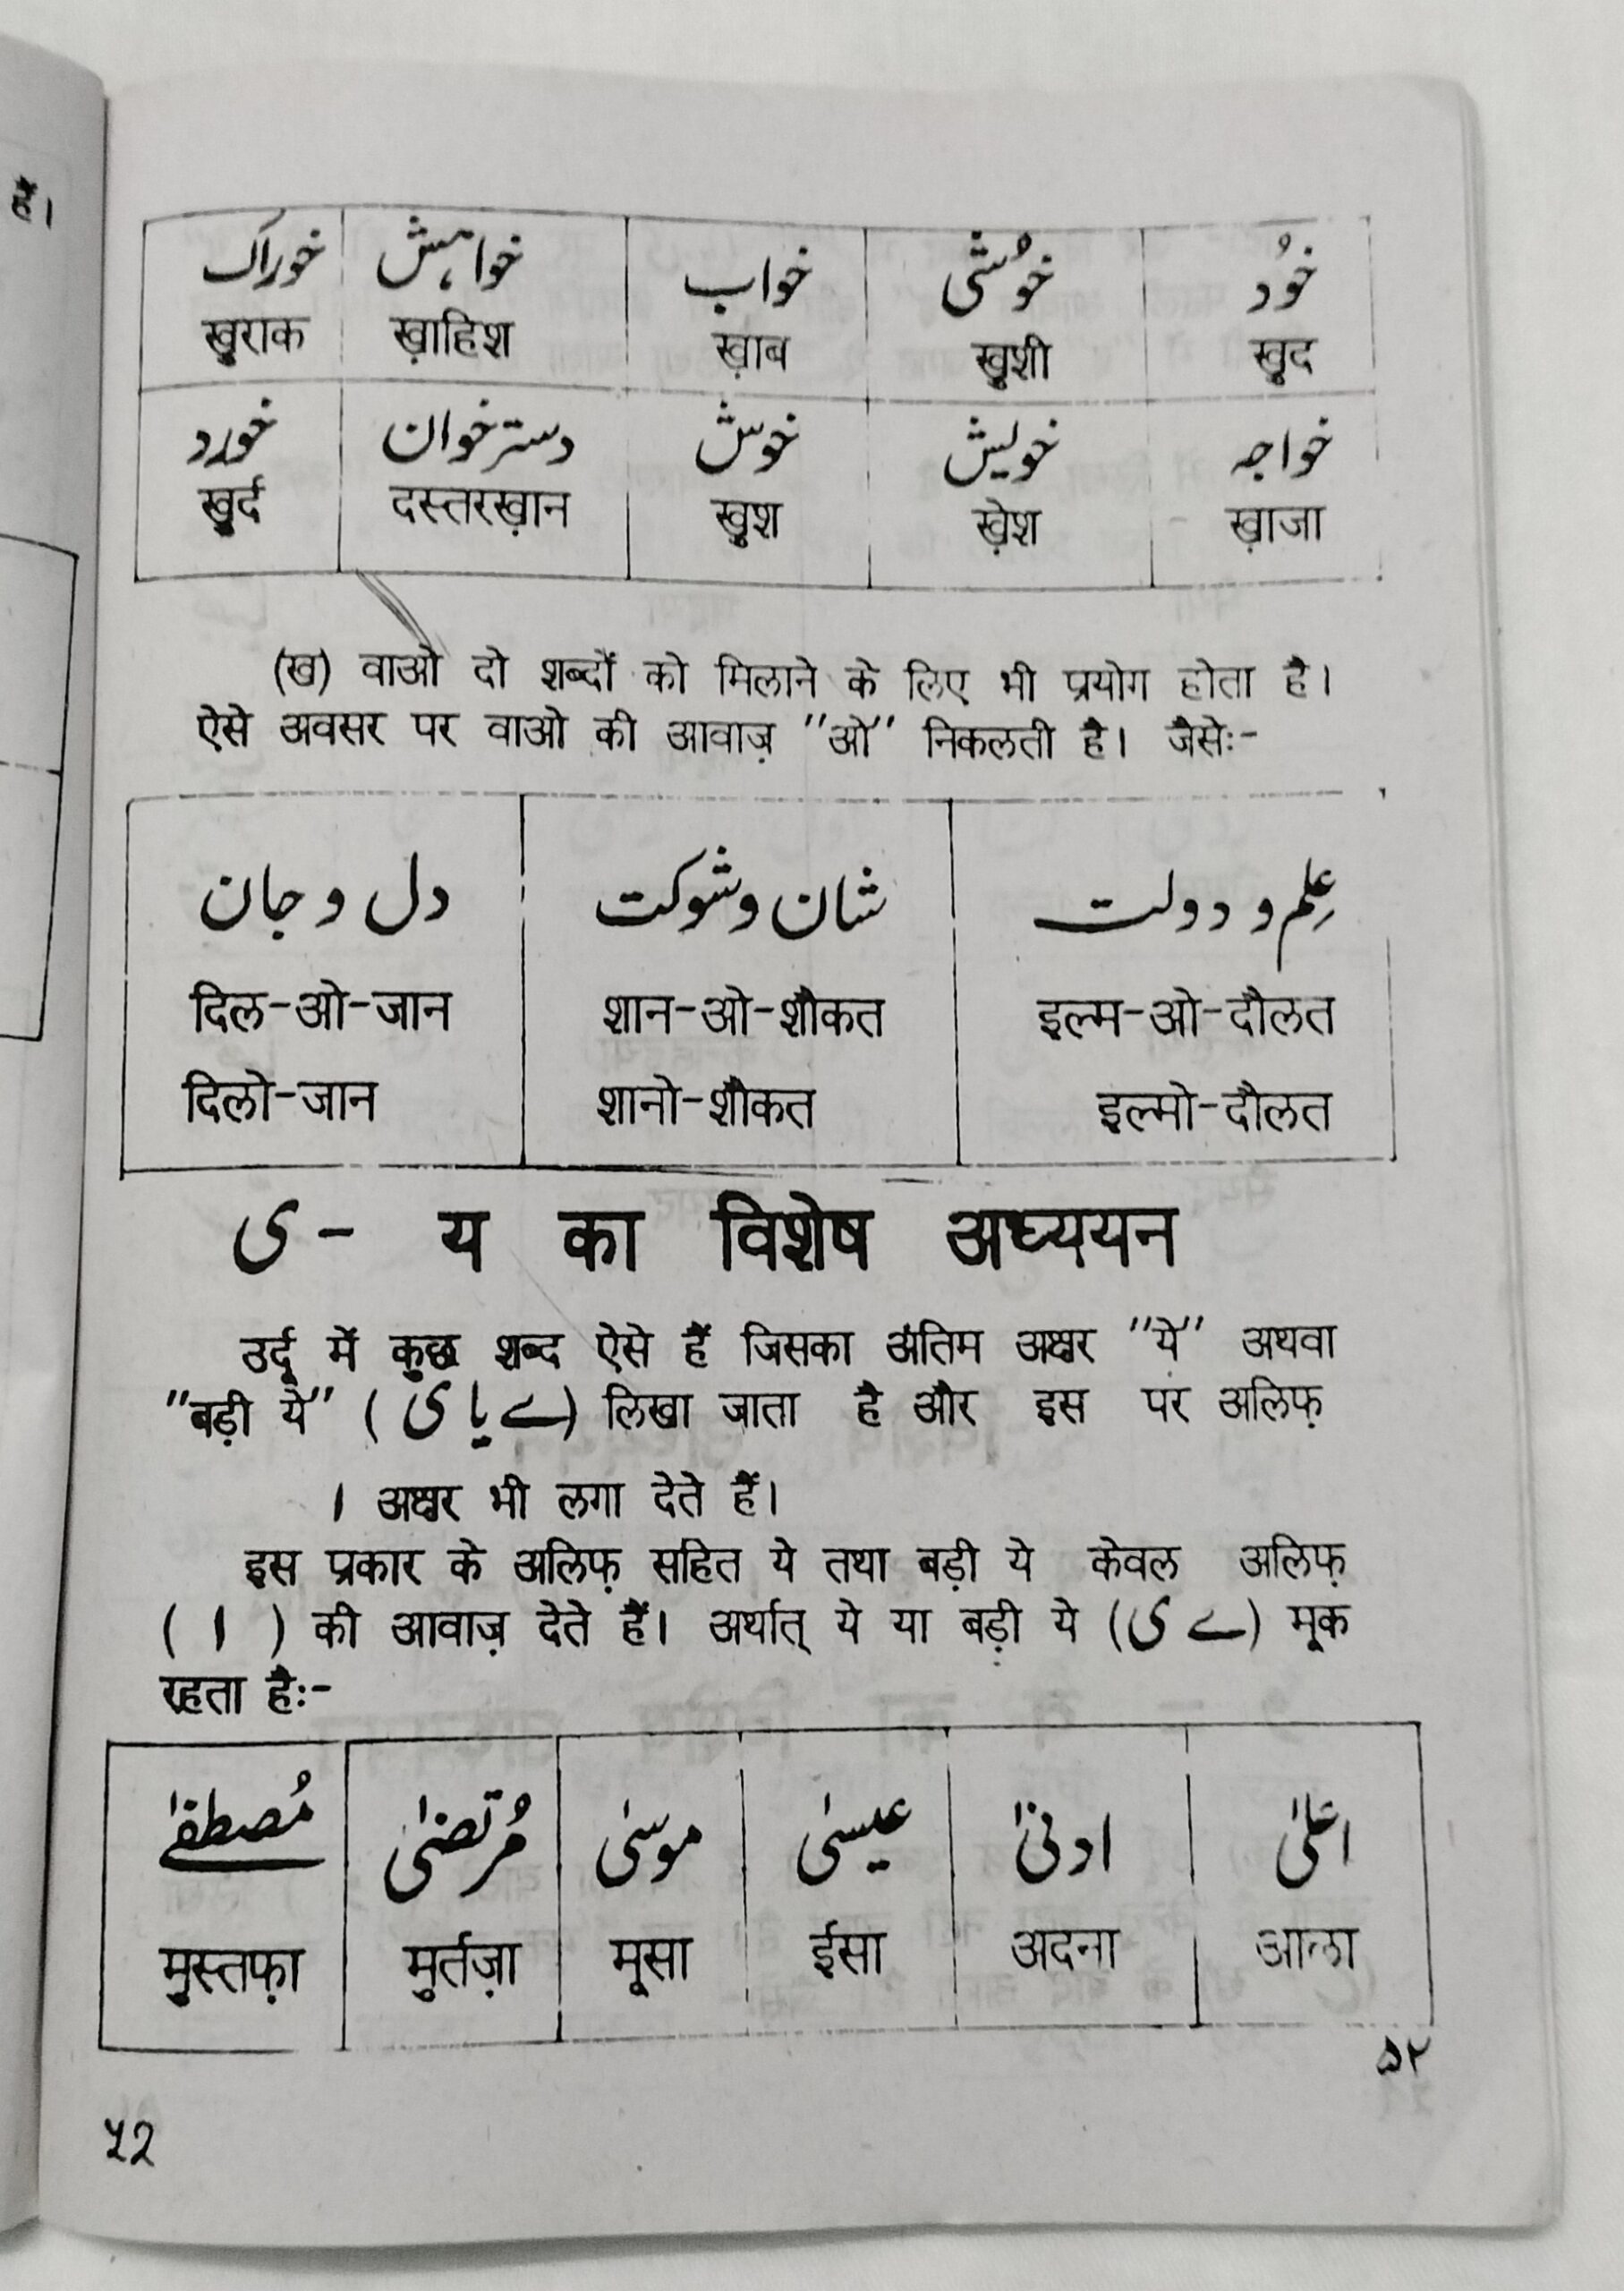 है।
خوراک خواہش خواب خوُشی خوُد
ख़ुराक ख़ाहिश ख़ाब ख़ुशी ख़ुद
خورد دسترخوان خوش خویش خواجہ
ख़ुर्द दस्तरख़ान ख़ुश ख़ेश ख़ाजा
(ख) वाओ दो शब्दों को मिलाने के लिए भी प्रयोग होता है।
ऐसे अवसर पर वाओ की आवाज़ "ओ" निकलती है। जैसेः-
دل و جان شان و شوکت عِلم و دولت
दिल-ओ-जान शान-ओ-शौकत इल्म-ओ-दौलत
दिलो-जान शानो-शौकत इल्मो-दौलत
ی - य का विशेष अध्ययन
उर्दू में कुछ शब्द ऐसे हैं जिसका अंतिम अक्षर "ये" अथवा
"बड़ी ये" (ی یا ے) लिखा जाता है और इस पर अलिफ़
ا अक्षर भी लगा देते हैं।
इस प्रकार के अलिफ़ सहित ये तथा बड़ी ये केवल अलिफ़
( ا ) की आवाज़ देते हैं। अर्थात् ये या बड़ी ये (ی ے) मूक
रहता हैः-
مُصطفےٰ مُرتضیٰ موسیٰ عیسیٰ ادنیٰ اعلیٰ
मुस्तफ़ा मुर्तज़ा मूसा ईसा अदना आला
۵۲
५२